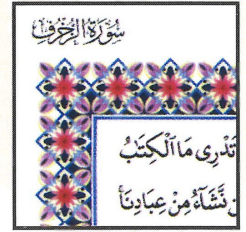 سُورَةُ الزُّخْرُفِ
تَدْرِى مَا ٱلْكِتَٰبُ
نَّشَآءُ مِنْ عِبَادِنَا